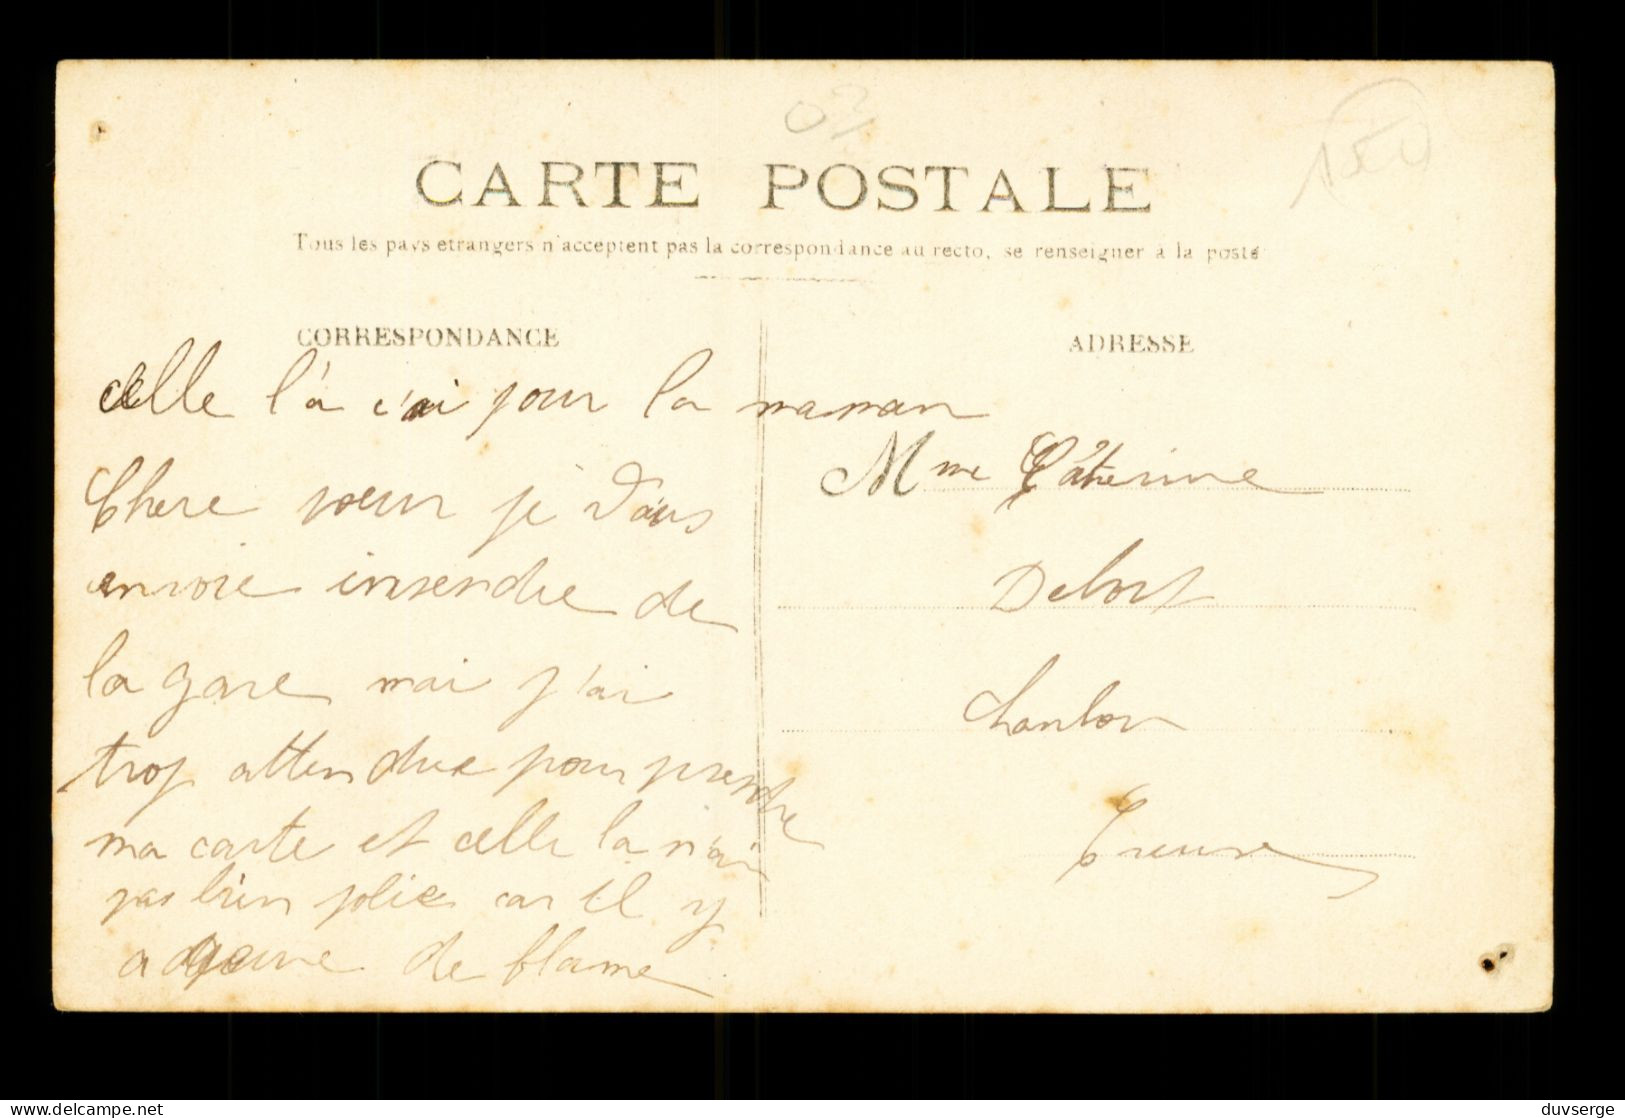 CARTE POSTALE
Tous les pays etrangers n'acceptent pas la correspondance au recto, se renseigner à la poste
CORRESPONDANCE
celle l'a c'ai pour la maman
Chere soeur je vous
envoie insendie de
la gare mai j'ai
trop attendue pour prendre
ma carte et celle la n'ai
pas bien jolie car il y
a de flame
ADRESSE
Mme Câterine
Delort
Chanbon
Creuse
duvserge